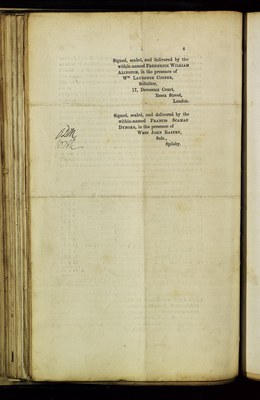 6
Signed, sealed, and delivered by the
within-named FREDERICK WILLIAM
ALLINGTON, in the presence of
Wm LAURENCE COOPER,
Solicitor,
17, Devereux Court,
Essex Street,
London.
Signed, sealed, and delivered by the
within-named FRANCIS
in the presence of
WEST JOHN
Solr.,
Spilsby.